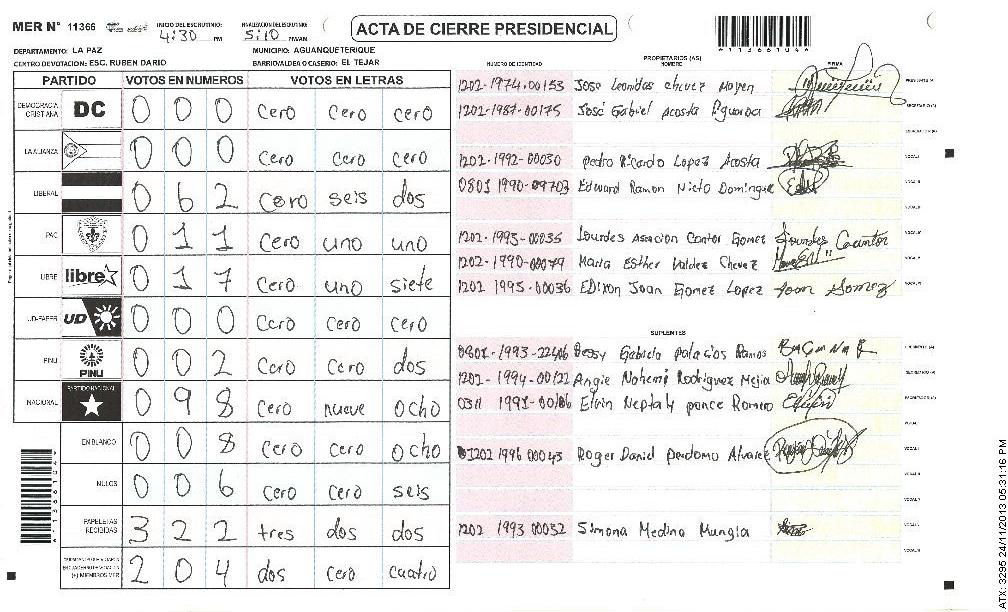 MER N° 11366 INICIO DEL ESCRUTINIO: 4:30 PM FINALIZACION DEL ESCRUTINIO: 5:10 PM/AM ACTA DE CIERRE PRESIDENCIAL
DEPARTAMENTO: LA PAZ MUNICIPIO: AGUANQUETERIQUE
CENTRO DE VOTACION: ESC. RUBEN DARIO BARRIO/ALDEA O CASERIO: EL TEJAR
PARTIDO VOTOS EN NUMEROS VOTOS EN LETRAS
DEMOCRACIA CRISTIANA DC 0 0 0 cero cero cero
LA ALIANZA 0 0 0 cero cero cero
LIBERAL 0 6 2 cero seis dos
PAC 0 1 1 cero uno uno
LIBRE libre 0 1 7 cero uno siete
UD-FAPER UD 0 0 0 cero cero cero
PINU PINU 0 0 2 cero cero dos
NACIONAL PARTIDO NACIONAL 0 9 8 cero nueve ocho
EN BLANCO 0 0 8 cero cero ocho
NULOS 0 0 6 cero cero seis
PAPELETAS RECIBIDAS 3 2 2 tres dos dos
(+) MIEMBROS MER 2 0 4 dos cero cuatro
PROPIETARIOS (AS)
NUMERO DE IDENTIDAD NOMBRE FIRMA
1202-1974-00153 Jose Leonidas chevez
1202-1987-00175 José Gabriel Acosta Figueroa
1202-1992-00030 pedro Ricardo Lopez Acosta
0801 1990-09703 Edward Ramon Nieto Domingue
1202-1995-00035 Lourdes Asencion Cantor Gomez Lourdes Cantor
1202-1990-00079 Maria Esther Valdez Chevez
1202 1995-00036 EDIXON Joan Gomez Lopez Joan Gomez
SUPLENTES
0801-1993-22406 Bessy Gabriela palacios Ramos
1202-1994-00122 Angie Nohemi Rodriguez Mejia
0311 1991-00106 Elvin Neptaly ponce Romero
1202 1996 00043 Roger Daniel perdomo Alvarez
1202 1993 00032 Simona Medina Mungia
113661044
ATX: 3295 24/11/2013 05:31:16 PM